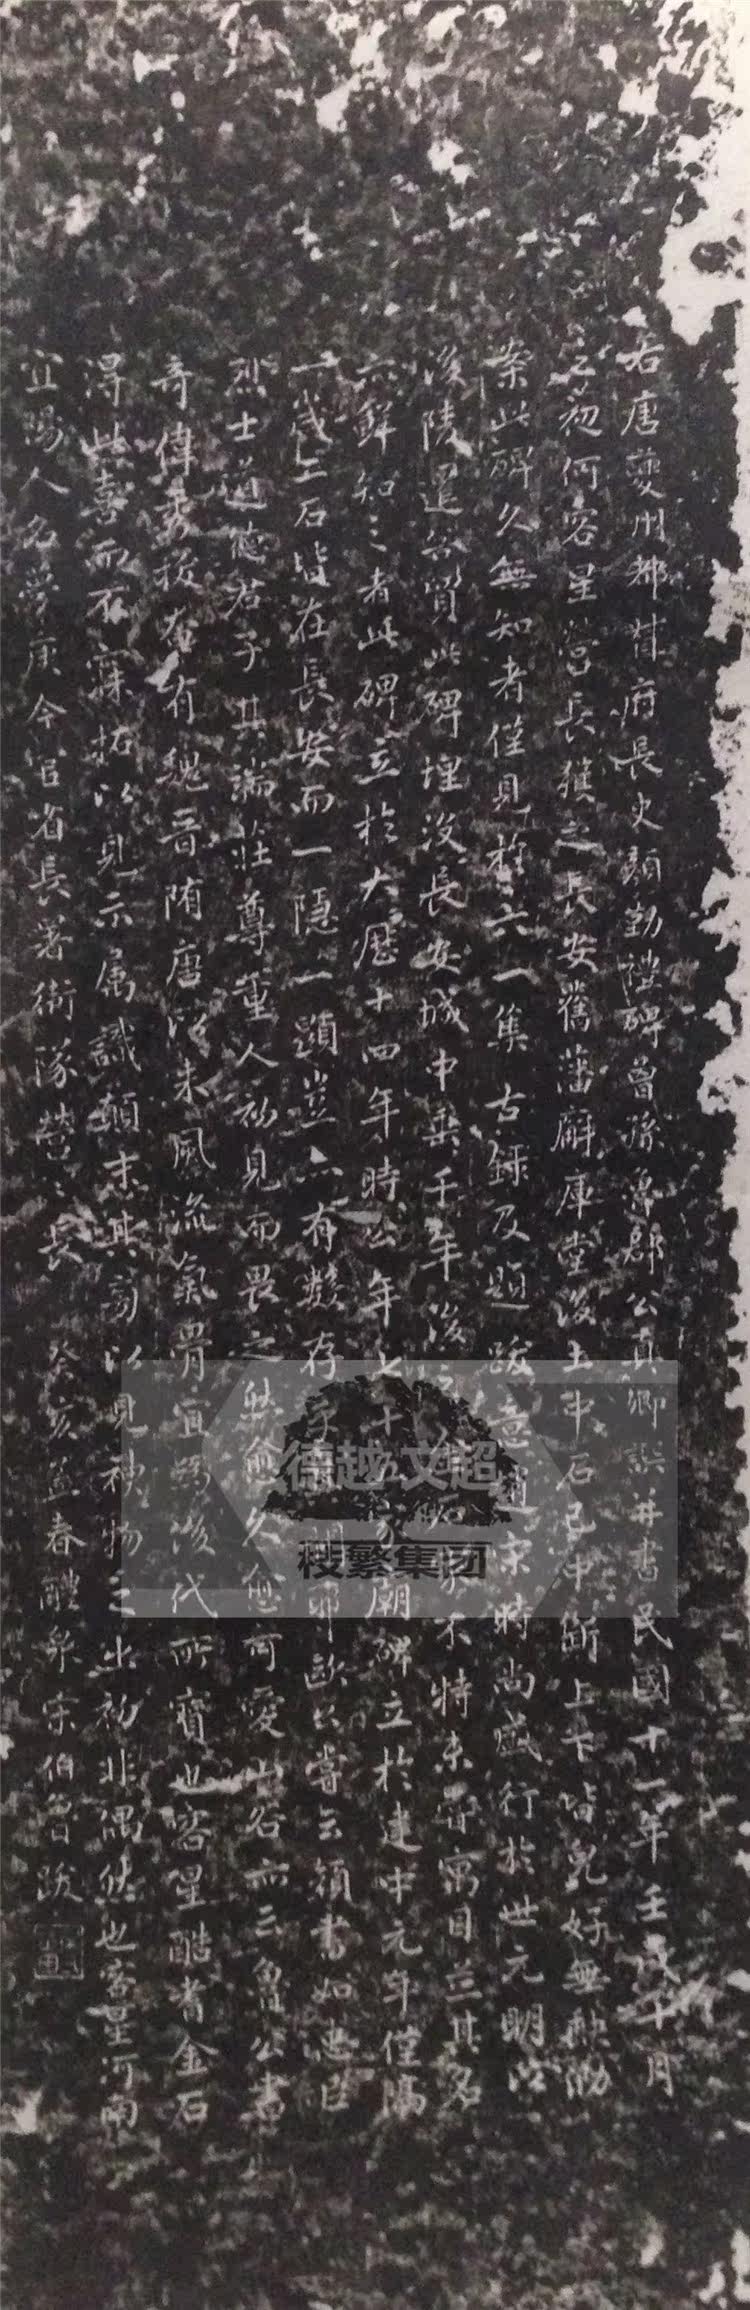 右唐夔州都督府長史顏勤禮碑曾孫魯郡公真卿譔并書民國十一年壬戌十月
之初何客星營長獲之長安舊藩廨庫堂後土中石已中斷上下皆完好無缺泐
案此碑久無知者僅見於六一集古錄及題跋意趙宋時尚盛行於世元明以
後陵遷谷質此碑埋没長安城中垂千年後 不特未曾寓目並其名
亦鮮知之者此碑立於大歷十四年時公年七十 家廟碑立於建中元年僅隔
一歲二石皆在長安而一隱一顯豈亦有數存 耶歐公嘗云顏書如忠臣
烈士道德君子其端莊尊重人初見而畏之然愈久愈可愛山谷亦云魯公書
奇偉秀拔奄有魏晉隋唐以來風流氣骨宜為後代所寶也客星酷耆金石
得此喜而不寐拓以見示属識顛末其 以見神物之出初非偶然也客星河南
宜陽人名夢庚今官省長署衛隊營營長 癸亥孟春醴泉宋伯魯跋
德越文超
枝繁集团